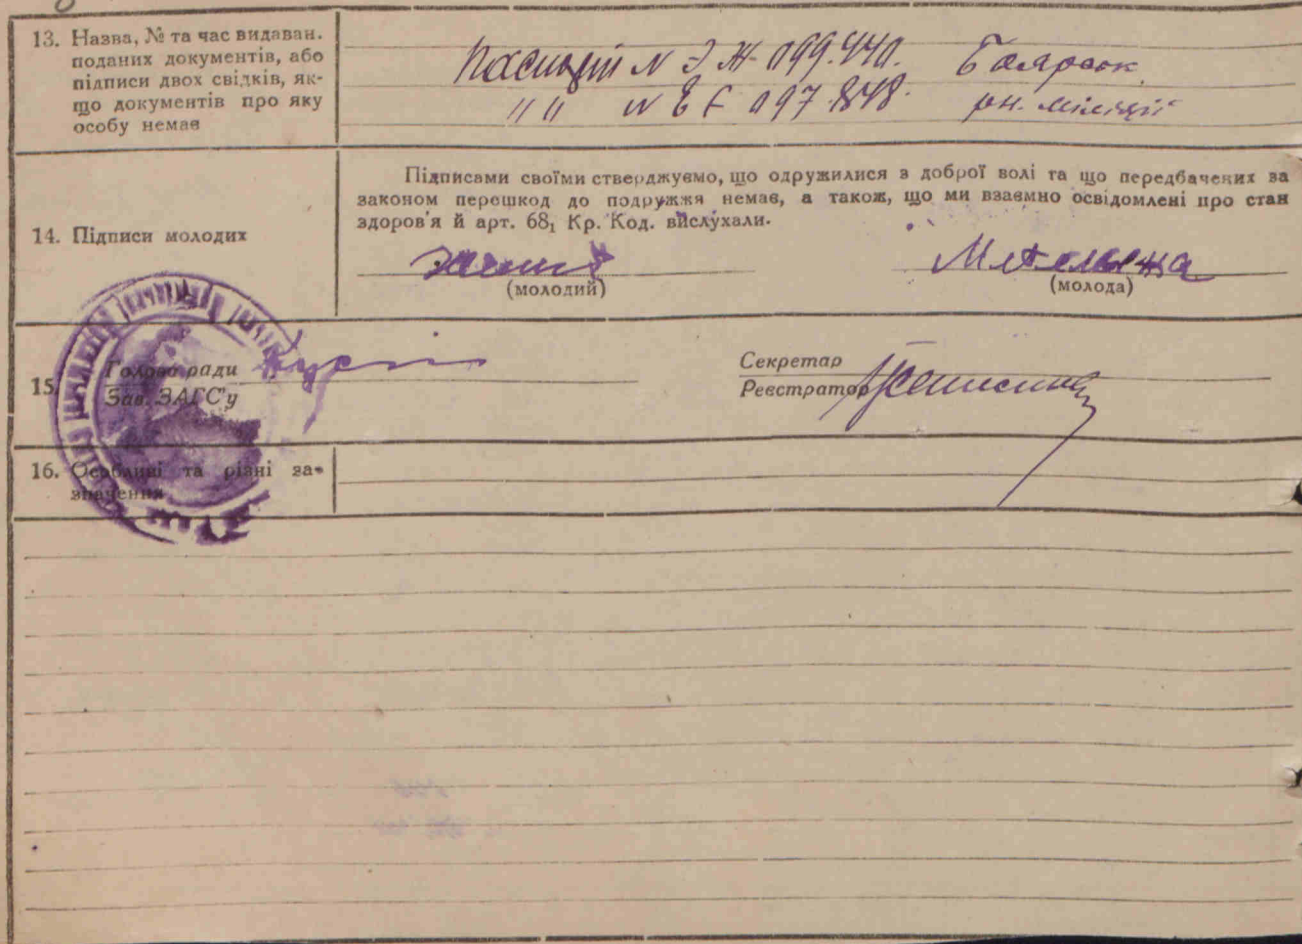 13. Назва, № та час видаван.
поданих документів, або
підписи двох свідків, як-
що документів про яку
особу немає
Паспорт N Э Ж 099.440. Боярськ.
" " N Е Е 097.848. рн. міліції
Підписами своїми стверджуємо, що одружилися з доброї волі та що передбачених за
законом перешкод до подружжя немає, а також, що ми взаємно освідомлені про стан
здоров'я й арт. 68₁ Кр. Код. вислухали.
14. Підписи молодих
(молодий)
(молода)
15. Голова ради
Зав. ЗАГС'у
Секретар
Реєстратор
16. Особливі та різні за-
значення